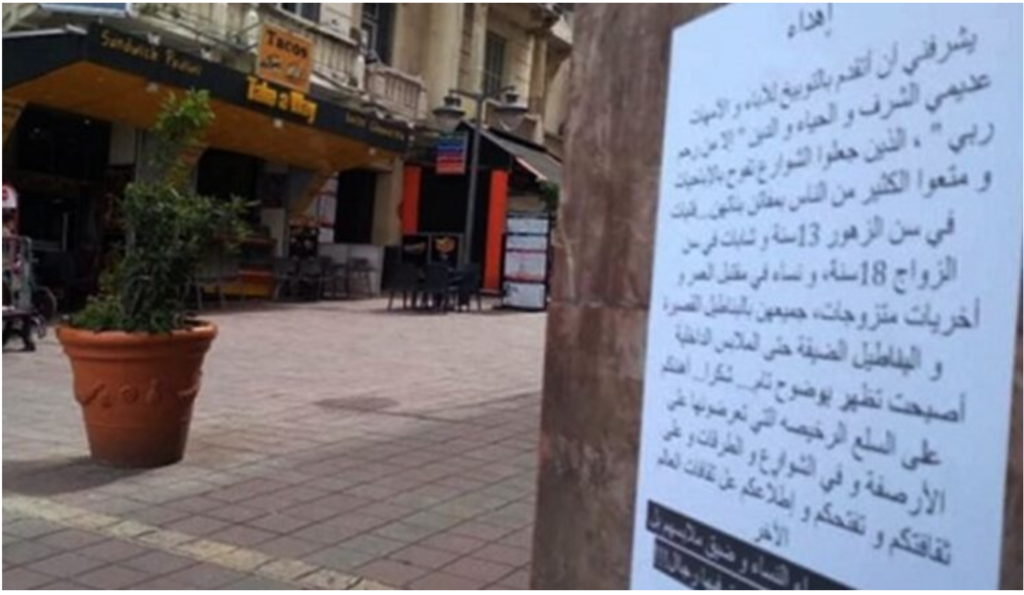 Sandwich
Tacos
Take a Way
إهداء
يشرفني أن أتقدم بالتوبيخ للآباء و الأمهات
عديمي الشرف و الحياء و الدين " إلا من رحم
ربي " ، الذين جعلوا الشوارع تفوح بالإباحيات
و متعوا الكثير من الناس بمفاتن بناتهن...فتيات
في سن الزهور 13سنة و شابات في سن
الزواج 18سنة، و نساء في مقتبل العمر و
أخريات متزوجات، جميعهن بالبناطيل القصيرة
و البناطيل الضيقة حتى الملابس الداخلية
أصبحت تظهر بوضوح تام... شكرا.. أهنئكم
على السلع الرخيصه التي تعرضونها على
الأرصفة و في الشوارع و الطرقات و على
ثقافتكم و تفتحكم و إطلاعكم عل ثقافات العالم
الآخر
النساء و ضيق ملابسهم
فيها رجال!!!